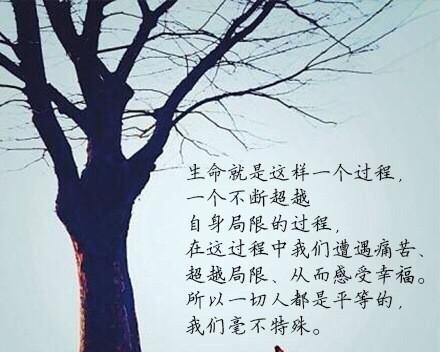 生命就是这样一个过程，
一个不断超越
自身局限的过程，
在这过程中我们遭遇痛苦、
超越局限、从而感受幸福。
所以一切人都是平等的，
我们毫不特殊。